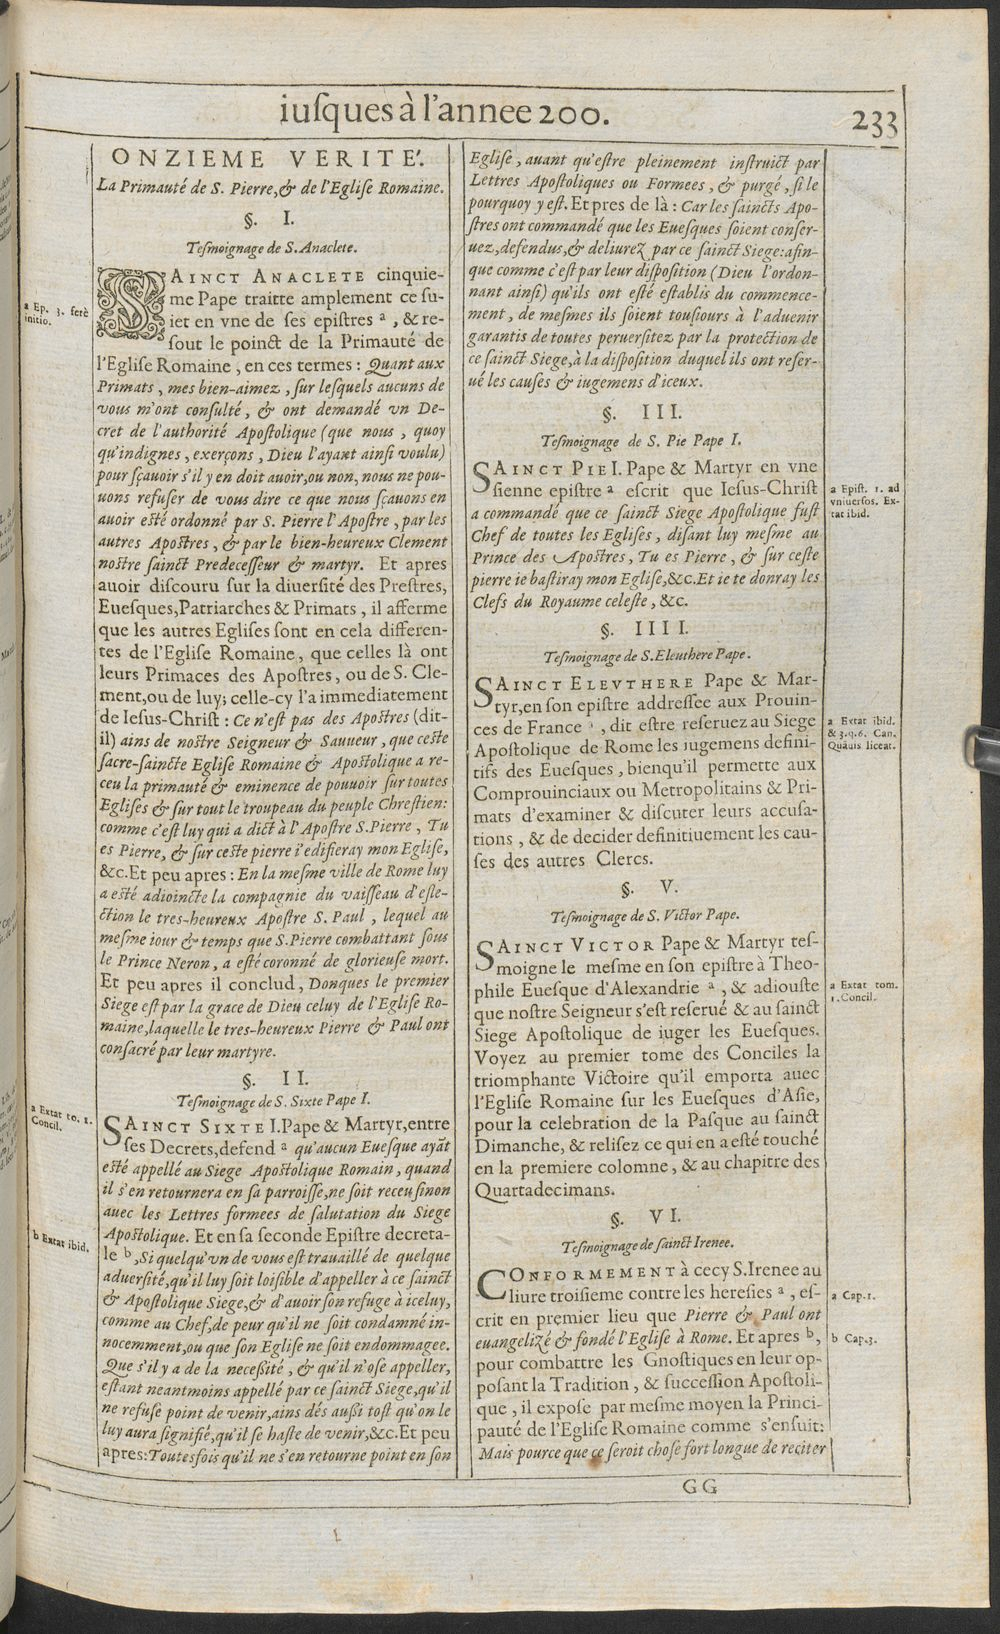 iuſques à l'annee 200.
233
ONZIEME VERITE'.
La Primauté de S. Pierre, & de l'Egliſe Romaine.
§. I.
Teſmoignage de S. Anaclete.
a Ep. 3. ferè
initio.
SAINCT ANACLETE cinquie-
me Pape traitte amplement ce ſu-
iet en vne de ſes epiſtres a, & re-
ſout le poinct de la Primauté de
l'Egliſe Romaine, en ces termes: Quant aux
Primats, mes bien-aimez, ſur leſquels aucuns de
vous m'ont conſulté, & ont demandé vn De-
cret de l'authorité Apoſtolique (que nous, quoy
qu'indignes, exerçons, Dieu l'ayant ainſi voulu)
pour ſçauoir s'il y en doit auoir, ou non, nous ne pou-
uons refuſer de vous dire ce que nous ſçauons en
auoir eſté ordonné par S. Pierre l'Apoſtre, par les
autres Apoſtres, & par le bien-heureux Clement
noſtre ſainct Predeceſſeur & martyr. Et apres
auoir diſcouru ſur la diuerſité des Preſtres,
Eueſques, Patriarches & Primats, il afferme
que les autres Egliſes ſont en cela differen-
tes de l'Egliſe Romaine, que celles là ont
leurs Primaces des Apoſtres, ou de S. Cle-
ment, ou de luy; celle-cy l'a immediatement
de Ieſus-Chriſt: Ce n'eſt pas des Apoſtres (dit-
il) ains de noſtre Seigneur & Sauueur, que ceſte
ſacre-ſaincte Egliſe Romaine & Apoſtolique a re-
ceu la primauté & eminence de pouuoir ſur toutes
Egliſes & ſur tout le troupeau du peuple Chreſtien:
comme c'eſt luy qui a dict à l'Apoſtre S. Pierre, Tu
es Pierre, & ſur ceſte pierre i'edifieray mon Egliſe,
&c. Et peu apres: En la meſme ville de Rome luy
a eſté adioincte la compagnie du vaiſſeau d'eſle-
ction le tres-heureux Apoſtre S. Paul, lequel au
meſme iour & temps que S. Pierre combattant ſous
le Prince Neron, a eſté coronné de glorieuſe mort.
Et peu apres il conclud, Donques le premier
Siege eſt par la grace de Dieu celuy de l'Egliſe Ro-
maine, laquelle le tres-heureux Pierre & Paul ont
conſacré par leur martyre.
§. II.
Teſmoignage de S. Sixte Pape I.
a Extat to. 1.
Concil.
SAINCT SIXTE I. Pape & Martyr, entre
ſes Decrets, defend a qu'aucun Eueſque ayãt
eſté appellé au Siege Apoſtolique Romain, quand
il s'en retournera en ſa parroiſſe, ne ſoit receu ſinon
auec les Lettres formees de ſalutation du Siege
Apoſtolique. Et en ſa ſeconde Epiſtre decreta-
b Extat ibid.
le b, Si quelqu'vn de vous eſt trauaillé de quelque
aduerſité, qu'il luy ſoit loiſible d'appeller à ce ſainct
& Apoſtolique Siege, & d'auoir ſon refuge à iceluy,
comme au Chef, de peur qu'il ne ſoit condamné in-
nocemment, ou que ſon Egliſe ne ſoit endommagee.
Que s'il y a de la neceßité, & qu'il n'oſe appeller,
eſtant neantmoins appellé par ce ſainct Siege, qu'il
ne refuſe point de venir, ains dés außi toſt qu'on le
luy aura ſignifié, qu'il ſe haſte de venir, &c. Et peu
apres: Toutesfois qu'il ne s'en retourne point en ſon
Egliſe, auant qu'eſtre pleinement inſtruict par
Lettres Apoſtoliques ou Formees, & purgé, ſi le
pourquoy y eſt. Et pres de là: Car les ſaincts Apo-
ſtres ont commandé que les Eueſques ſoient conſer-
uez, defendus, & deliurez par ce ſainct Siege: afin-
que comme c'eſt par leur diſpoſition (Dieu l'ordon-
nant ainſi) qu'ils ont eſté eſtablis du commence-
ment, de meſmes ils ſoient touſiours à l'aduenir
garantis de toutes peruerſitez par la protection de
ce ſainct Siege, à la diſpoſition duquel ils ont reſer-
ué les cauſes & iugemens d'iceux.
§. III.
Teſmoignage de S. Pie Pape I.
SAINCT PIE I. Pape & Martyr en vne
ſienne epiſtre a eſcrit que Ieſus-Chriſt
a Epiſt. 1. ad
vniuerſos. Ex-
tat ibid.
a commandé que ce ſainct Siege Apoſtolique fuſt
Chef de toutes les Egliſes, diſant luy meſme au
Prince des Apoſtres, Tu es Pierre, & ſur ceſte
pierre ie baſtiray mon Egliſe, &c. Et ie te donray les
Clefs du Royaume celeſte, &c.
§. IIII.
Teſmoignage de S. Eleuthere Pape.
SAINCT ELEVTHERE Pape & Mar-
tyr, en ſon epiſtre addreſſee aux Prouin-
ces de France a, dit eſtre reſeruez au Siege
a Extat ibid.
& 3. q. 6. Can.
Quãuis liceat.
Apoſtolique de Rome les iugemens defini-
tifs des Eueſques, bienqu'il permette aux
Comprouinciaux ou Metropolitains & Pri-
mats d'examiner & diſcuter leurs accuſa-
tions, & de decider definitiuement les cau-
ſes des autres Clercs.
§. V.
Teſmoignage de S. Victor Pape.
SAINCT VICTOR Pape & Martyr teſ-
moigne le meſme en ſon epiſtre à Theo-
phile Eueſque d'Alexandrie a, & adiouſte
a Extat tom.
1. Concil.
que noſtre Seigneur s'eſt reſerué & au ſainct
Siege Apoſtolique de iuger les Eueſques.
Voyez au premier tome des Conciles la
triomphante Victoire qu'il emporta auec
l'Egliſe Romaine ſur les Eueſques d'Aſie,
pour la celebration de la Paſque au ſainct
Dimanche, & reliſez ce qui en a eſté touché
en la premiere colomne, & au chapitre des
Quartadecimans.
§. VI.
Teſmoignage de ſainct Irenee.
CONFORMEMENT à cecy S. Irenee au
liure troiſieme contre les hereſies a, eſ-
a Cap. 1.
crit en premier lieu que Pierre & Paul ont
euangelizé & fondé l'Egliſe à Rome. Et apres b,
b Cap. 3.
pour combattre les Gnoſtiques en leur op-
poſant la Tradition, & ſucceſſion Apoſtoli-
que, il expoſe par meſme moyen la Princi-
pauté de l'Egliſe Romaine comme s'enſuit:
Mais pource que ce ſeroit choſe fort longue de reciter
GG